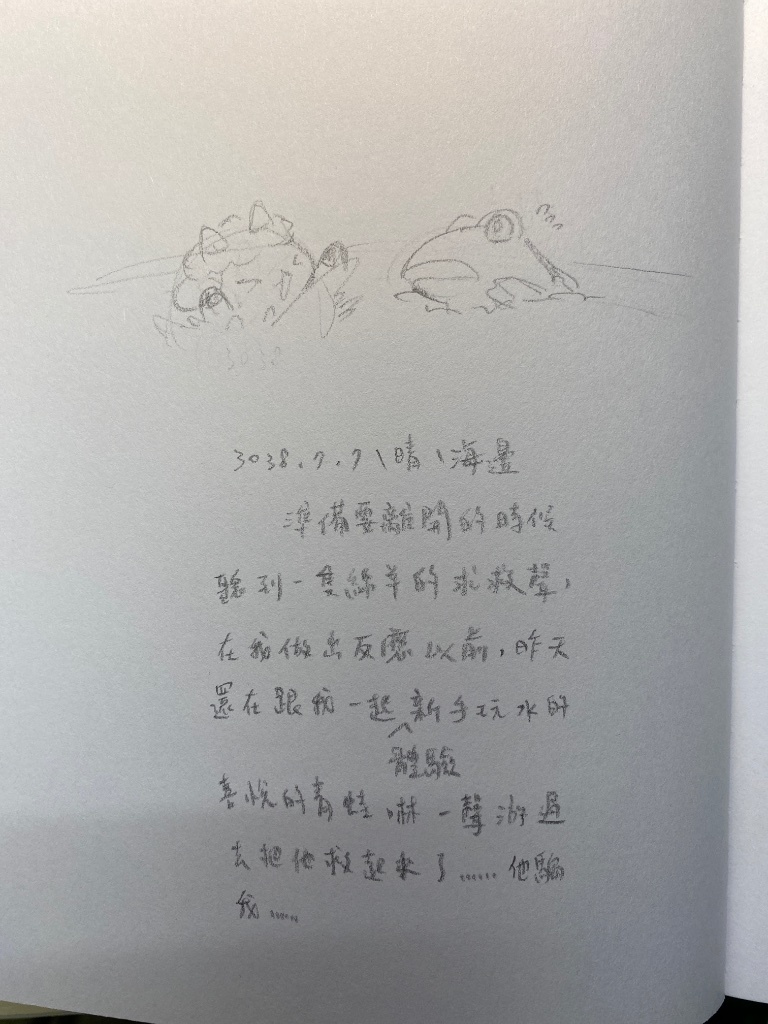 3038
3038.7.7\晴\海邊
準備要離開的時候
聽到一隻綿羊的求救聲,
在我做出反應以前,昨天
還在跟我一起新手玩水的
體驗
喜悅的青蛙咻一聲游過
去把他救起來了……他騙
我……